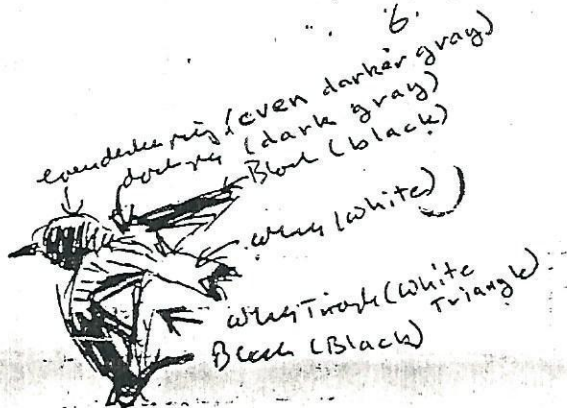 6.
even darker gray (even darker gray)
dark gray (dark gray)
Black (black)
White (white)
White Triangle (White Triangle)
Black (Black)